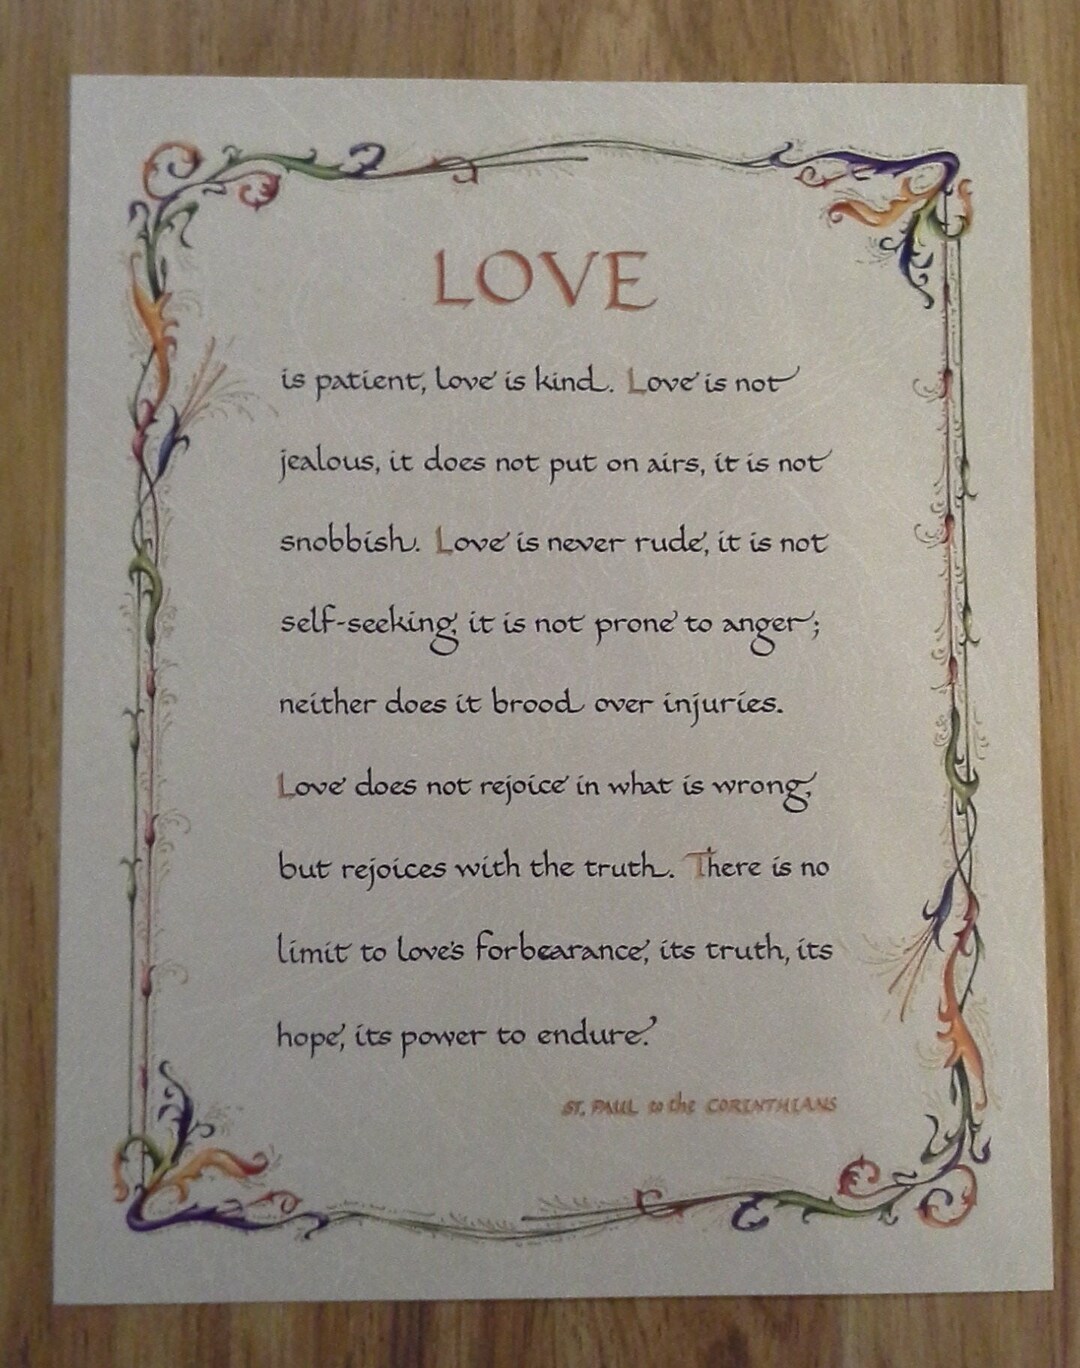 LOVE
is patient, love is kind. Love is not
jealous, it does not put on airs, it is not
snobbish. Love is never rude, it is not
self-seeking, it is not prone to anger;
neither does it brood over injuries.
Love does not rejoice in what is wrong,
but rejoices with the truth. There is no
limit to love's forbearance, its truth, its
hope, its power to endure.
ST. PAUL to the CORINTHIANS